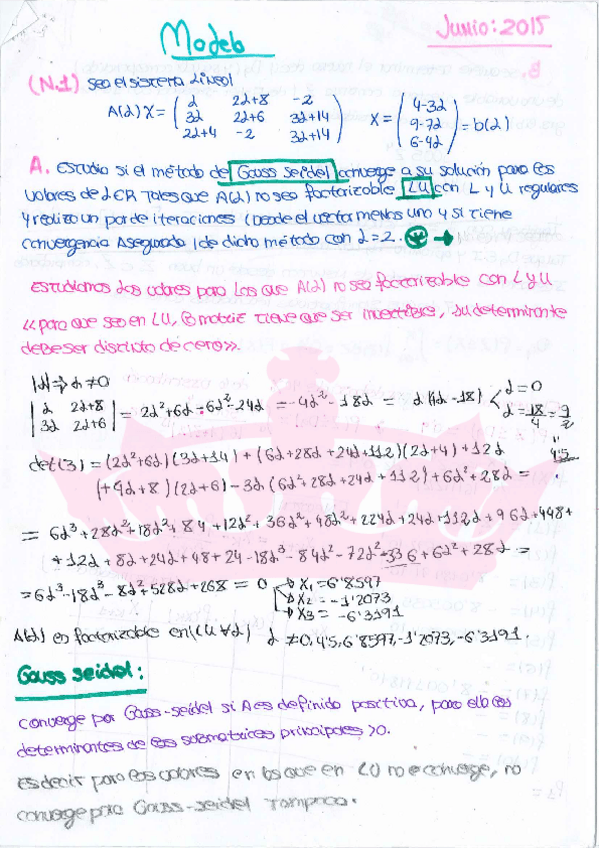 Modelo
Junio: 2015
(N.1) sea el sistema Lineal
A(α) X = ( α 2α+8 -2
3α 2α+6 3α+14
2α+4 -2 3α+14 )
X = ( 4-3α
9-7α
6-4α ) = b(α)
A. Estudia si el método de Gauss Seidel converge a su solución para los
valores de α ∈ R Tales que A(α) no sea factorizable LU con L y U regulares
y realiza un par de iteraciones (Desde el vector menos uno y si tiene
convergencia Asegurada) de dicho método con α = 2. →
Estudiamos los valores para Los que A(α) no sea factorizable con L y U
<<para que sea en LU, la matriz Tiene que ser invertible, su determinante
debe ser distinto de cero>>.
|α| => α ≠ 0
| α 2α+8
3α 2α+6 | = 2α²+6α-6α²-24α = -4α²-18α = α(4α-18) < α=0
α=18/4=9/2
4'5
det(3) = (2α²+6α)(3α+14) + (6α+28α+24α+112)(2α+4)+12α
(+4α+8)(2α+6) - 3α(6α²+28α+24α+112)+6α²+28α =
= 6α³+28α²+18α²+84+12α²+36α²+48α²+224α+24α+112α+96α+448+
+12α+8α+24α+48+24-18α³-84α²-72α²-336+6α²+28α =
= 6α³-18α³-8α²+528α+268 = 0
X₁ = 6'8597
X₂ = -1'2073
X₃ = -6'3191
A(α) es factorizable en (LU ∀α) α ≠ 0, 4'5, 6'8597, -1'2073, -6'3191.
Gauss seidel:
converge por Gauss-seidel si A es definida positiva, para ello los
determinantes de las submatrices principales >0.
Es decir para los valores en los que en LU no converge, no
converge para Gauss-seidel Tampoco.